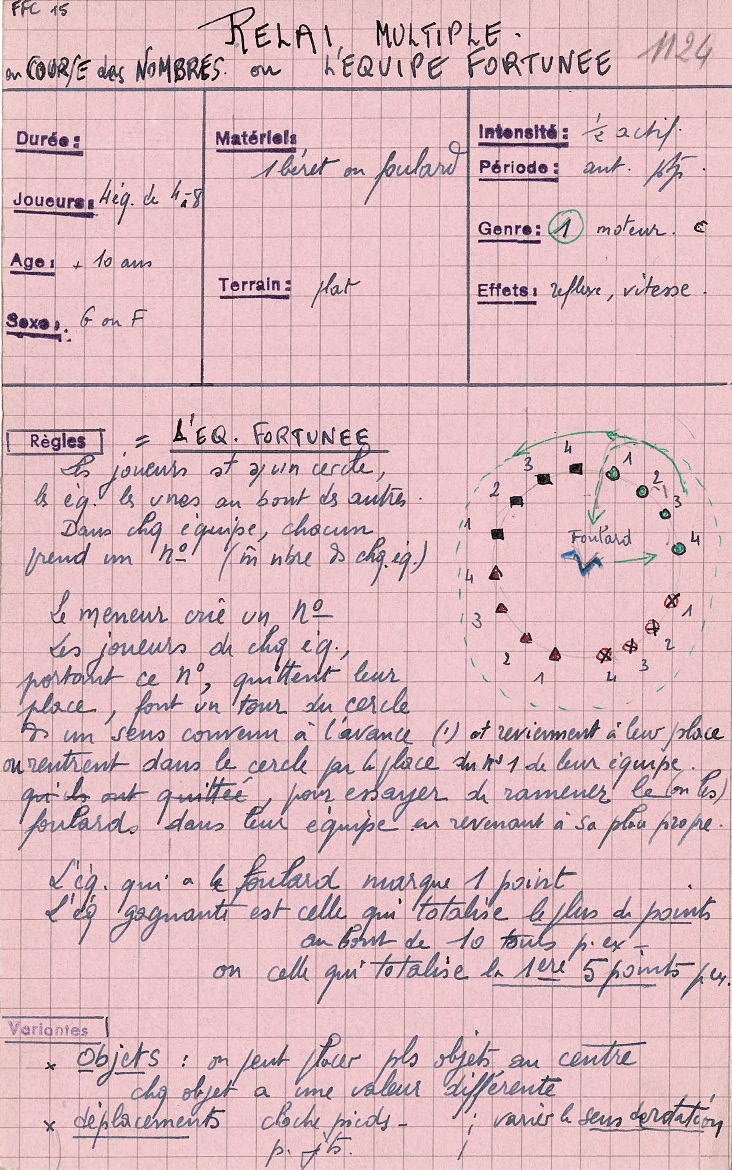 FFC 15
RELAI MULTIPLE.
ou COURSE des NOMBRES. ou L'EQUIPE FORTUNEE
1124
Durée:
Joueurs: 4 éq. de 4 à 8
Age: + 10 ans
Sexe: G ou F
Matériel:
1 béret ou foulard
Terrain: plat
Intensité: ½ actif.
Période: ant.
Genre: 1 moteur. C
Effets: réflexe, vitesse.
Règles = L'EQ. FORTUNEE
Les joueurs st sur un cercle,
les éq. les unes au bout des autres.
Dans chq équipe, chacun
prend un n° (m̄ nbre ds chq. éq.)
Le meneur crie un n°
Les joueurs de chq éq.,
portant ce n°, quittent leur
place, font un tour du cercle
ds un sens convenu à l'avance (1) et reviennent à leur place
ou rentrent dans le cercle par la place du N°1 de leur équipe.
qu'ils ont quittée, pour essayer de ramener le (ou les)
foulards dans leur équipe en revenant à sa place propre.
1 2 3 4
1 2 3 4
1 2 3 4
1 2 3 4
Foulard
L'éq. qui a le foulard marque 1 point
L'éq gagnante est celle qui totalise le plus de points
au bout de 10 tours p. ex -
ou celle qui totalise la 1ère 5 points p. ex.
Variantes
× Objets : on peut placer pls objets au centre
chq objet a une valeur différente
× déplacements cloche pieds - ; varier le sens de rotation
p. jts. ;